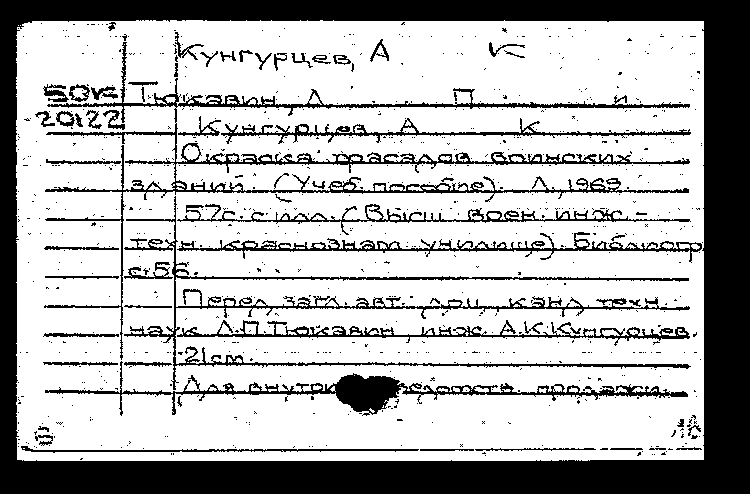 Кунгурцев, А К
50к Тюкавин, Л. П. и
20122 Кунгурцев, А К
Окраска фасадов воинских
зданий. (Учеб. пособие). Л., 1969.
57с. с илл. (Высш. воен. инж.-
техн. краснознам. училище). Библиогр.
с. 56.
Перед загл. авт.: доц., канд. техн.
наук Л.П. Тюкавин, инж. А.К. Кунгурцев.
21см.
Для продажи.
6